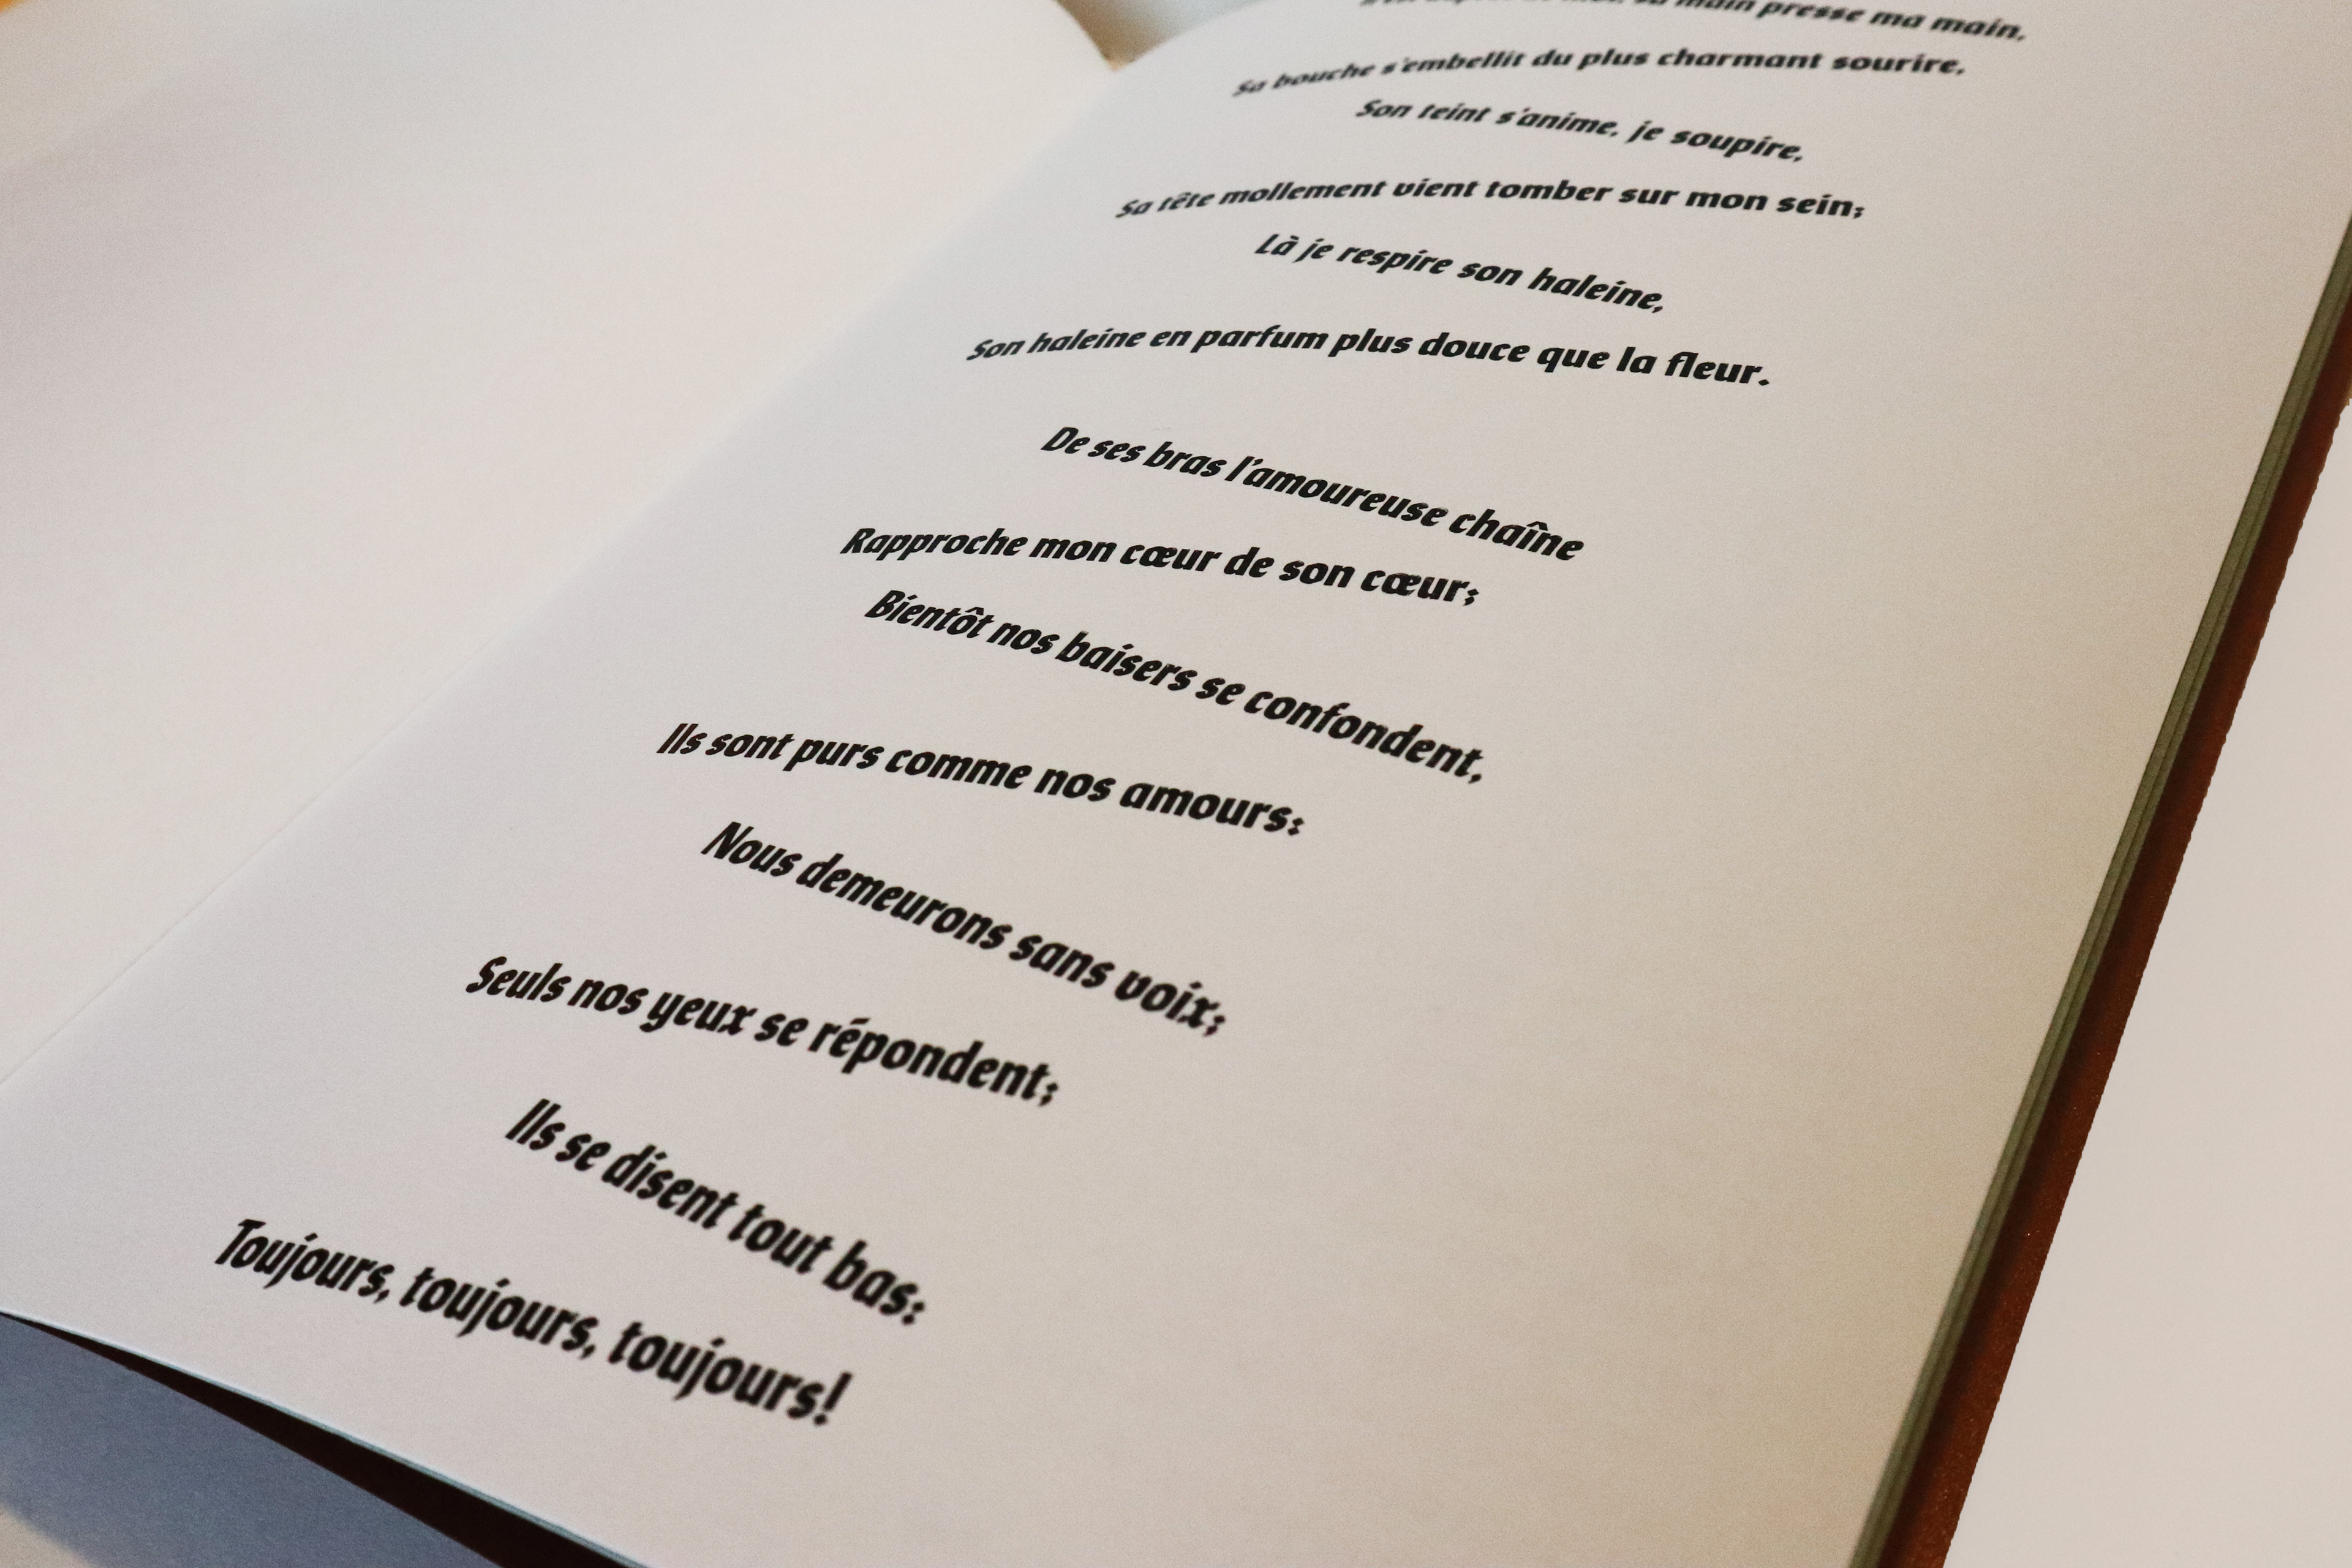 sa main presse ma main,
Sa bouche s'embellit du plus charmant sourire,
Son teint s'anime, je soupire,
Sa tête mollement vient tomber sur mon sein;
Là je respire son haleine,
Son haleine en parfum plus douce que la fleur.
De ses bras l'amoureuse chaîne
Rapproche mon cœur de son cœur;
Bientôt nos baisers se confondent,
Ils sont purs comme nos amours:
Nous demeurons sans voix;
Seuls nos yeux se répondent;
Ils se disent tout bas:
Toujours, toujours, toujours!